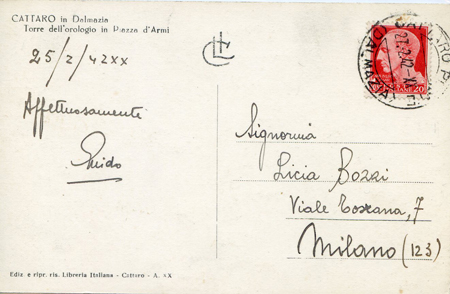 CATTARO in Dalmazia
Torre dell'orologio in Piazza d'Armi
25/2/42 XX
Affettuosamente
Guido
Signorina
Licia Bozzi
Viale Toscana, 7
Milano (123)
27.2.42
20
Ediz. e ripr. ris. Libreria Italiana - Cattaro - A. XX